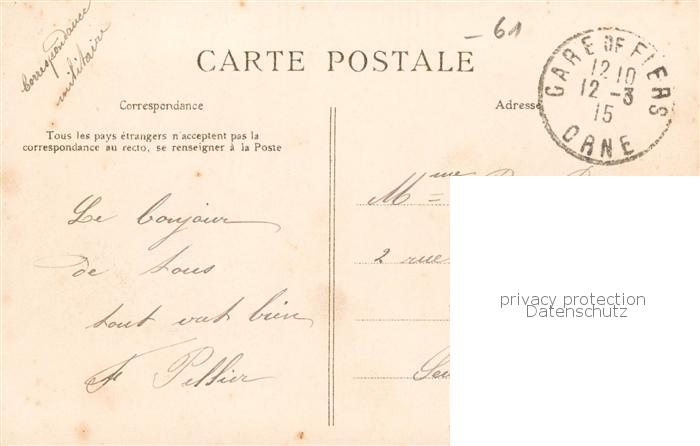 Correspondance
militaire
- 61
CARTE POSTALE
GARE DE FLERS
12 10
12 -3
15
ORNE
Correspondance
Adresse
Tous les pays étrangers n'acceptent pas la
correspondance au recto, se renseigner à la Poste
Le bonjour
de tous
tout vat bien
F Pellier
Mme
2 rue
privacy protection
Datenschutz